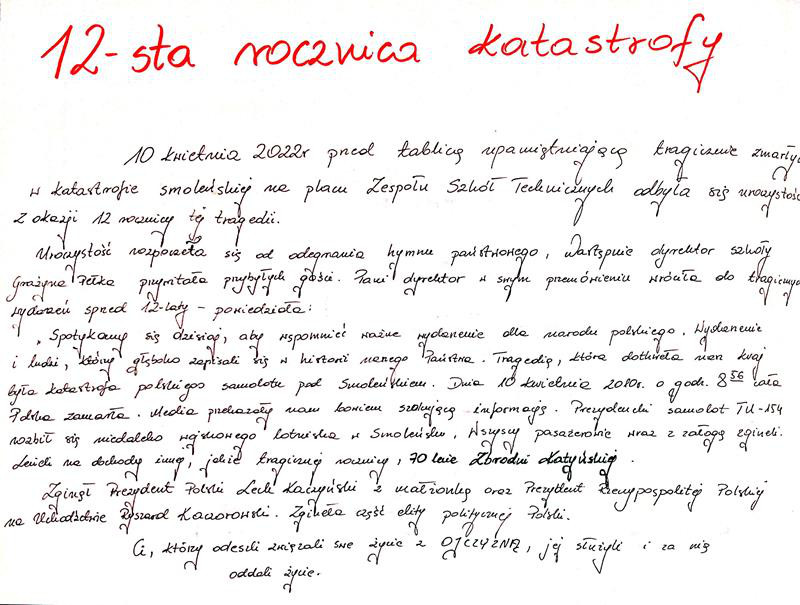 12-sta rocznica katastrofy
10 kwietnia 2022r przed tablicą upamiętniającą tragicznie zmarłyc
w katastrofie smoleńskiej na placu Zespołu Szkół Technicznych odbyła się uroczystość
z okazji 12 rocznicy tej tragedii.
Uroczystość rozpoczęła się od odegrania hymnu państwowego, następnie dyrektor szkoły
Grażyna Pełka przywitała przybyłych gości. Pani dyrektor w swym przemówieniu wróciła do tragicznyc
wydarzeń sprzed 12-laty - powiedziała:
„Spotykamy się dzisiaj, aby wspomnieć ważne wydarzenie dla narodu polskiego. Wydarzenie
i ludzi, którzy głęboko zapisali się w historii naszego Państwa. Tragedią, która dotknęła nasz kraj
była katastrofa polskiego samolotu pod Smoleńskiem. Dnia 10 kwietnia 2010r. o godz. 8 56 cała
Polska zamarła. Media przekazały nam bowiem szokującą informację. Prezydencki samolot TU-154
rozbił się niedaleko wojskowego lotniska w Smoleńsku. Wszyscy pasażerowie wraz z załogą zginęli.
Lecieli na obchody innej, jakże tragicznej rocznicy, 70 lecie Zbrodni Katyńskiej.
Zginął Prezydent Polski Lech Kaczyński z małżonką oraz Prezydent Rzeczypospolitej Polskiej
na Uchodźstwie Ryszard Kaczorowski. Zginęła część elity politycznej Polski.
Ci, którzy odeszli związali swe życie z OJCZYZNĄ, jej służyli i za nią
oddali życie.